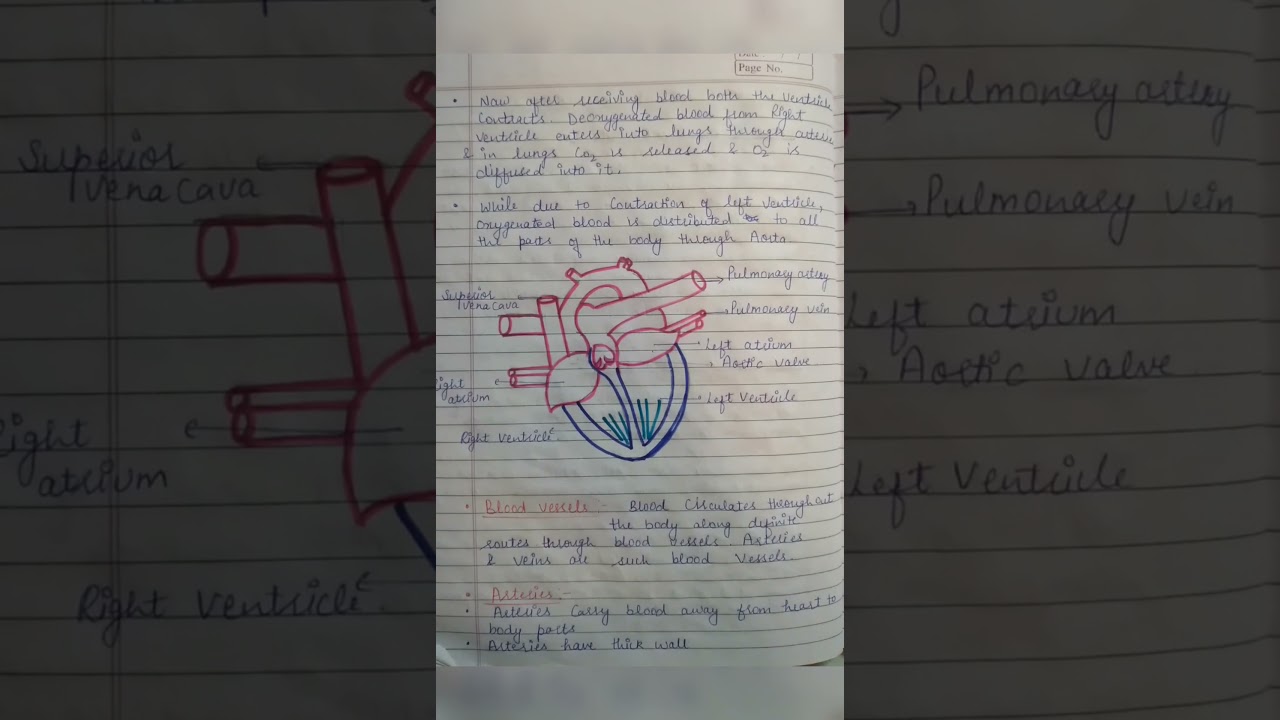 Page No.
• Now after receiving blood both the Ventricle
Contracts. Deoxygenated blood from Right
Ventricle enters into lungs through arteries
& in lungs Co2 is released & O2 is
diffused into it.
• While due to Contraction of left Ventricle,
oxygenated blood is distributed to all
the parts of the body through Aorta.
Pulmonary artery
Superior
Vena Cava
Pulmonary vein
Left atrium
Aortic valve
Right
atrium
Left Ventricle
Right Ventricle
• Blood Vessels :- Blood Circulates throughout
the body along definite
routes through blood vessels. Arteries
& veins are such blood Vessels.
• Arteries :-
• Arteries Carry blood away from heart to
body parts
• Arteries have thick wall
Superior
Vena Cava
Right
atrium
Right Ventricle
Pulmonary artery
Pulmonary vein
Left atrium
Aortic valve
Left Ventricle